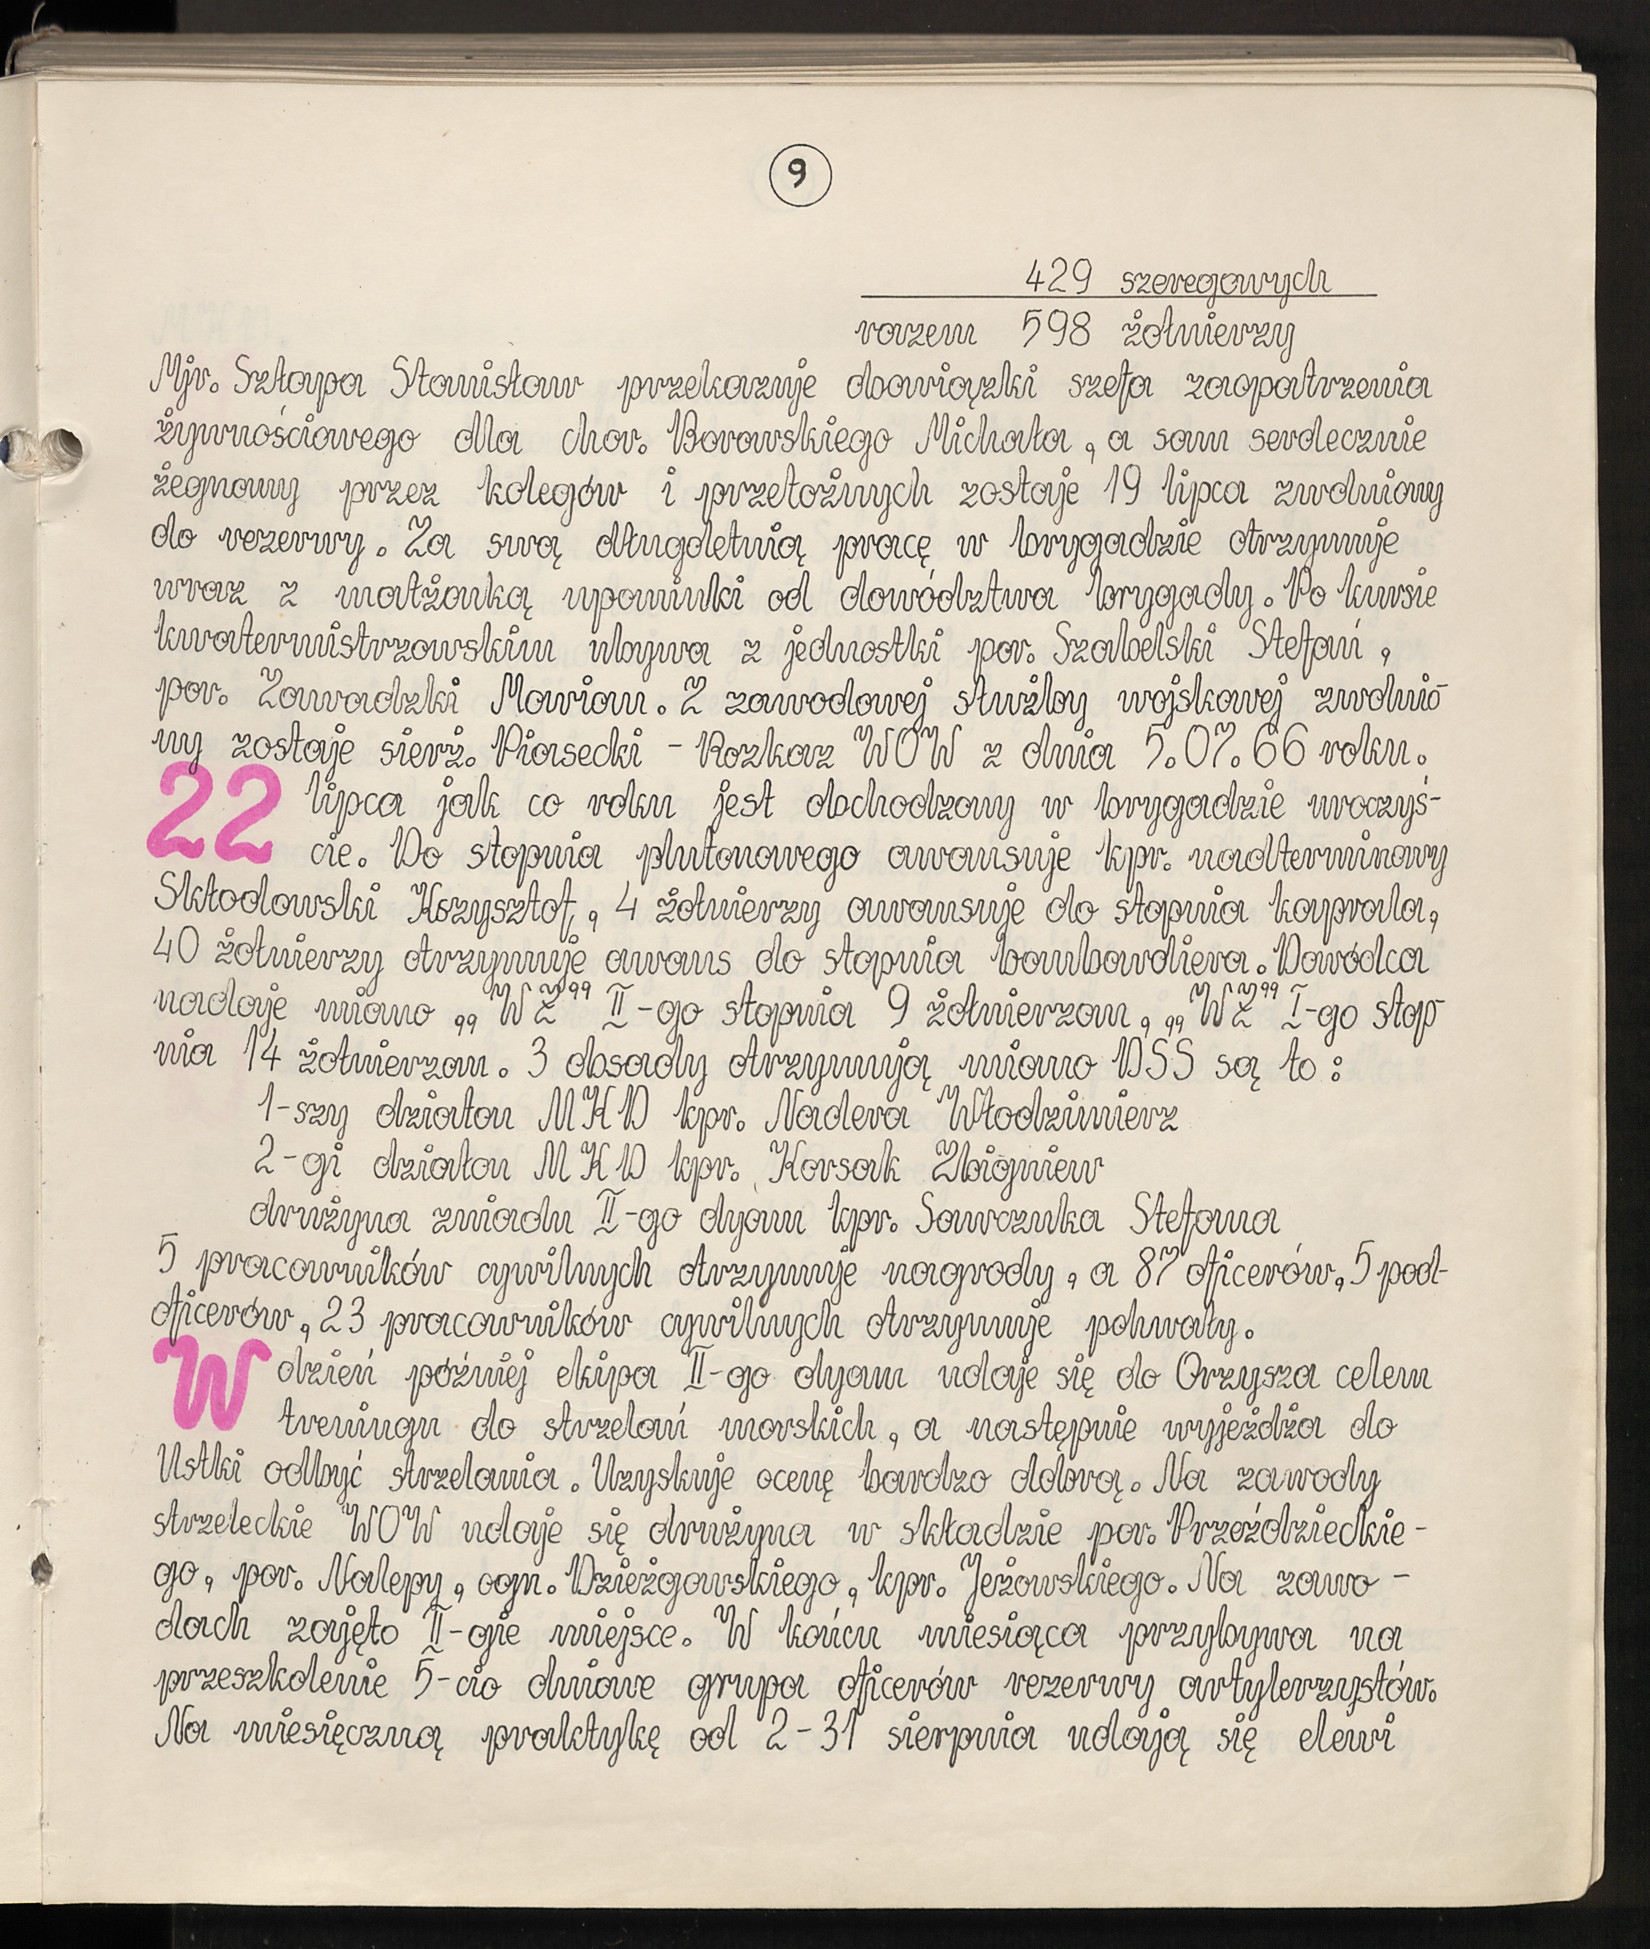 9
429 szeregowych
razem 598 żołnierzy
Mjr. Szłapa Stanisław przekazuje obowiązki szefa zaopatrzenia
żywnościowego dla chor. Borowskiego Michała, a sam serdecznie
żegnany przez kolegów i przełożnych zostaje 19 lipca zwolniony
do rezerwy. Za swą długoletnią pracę w brygadzie otrzymuje
wraz z małżonką upominki od dowództwa brygady. Po kursie
kwatermistrzowskim ubywa z jednostki por. Szabelski Stefań,
por. Zawadzki Marian. Z zawodowej służby wojskowej zwolnio-
ny zostaje sierż. Piasecki - Rozkaz WOW z dnia 5.07.66 roku.
22 lipca jak co roku jest obchodzony w brygadzie uroczyś-
cie. Do stopnia plutonowego awansuje kpr. nadterminowy
Skłodowski Krzysztof, 4 żołnierzy awansuje do stopnia kaprala,
40 żołnierzy otrzymuje awans do stopnia bombardiera. Dowódca
nadaje miano „WŻ” II-go stopnia 9 żołnierzom, „WŻ” I-go stop-
nia 14 żołnierzom. 3 obsady otrzymują miano DSS są to:
1-szy działon MKD kpr. Nadera Włodzimierz
2-gi działon MKD kpr. Korsak Zbigniew
drużyna zwiadu II-go dyonu kpr. Sawczuka Stefana
5 pracowników cywilnych otrzymuje nagrody, a 87 oficerów, 5 pod-
oficerów, 23 pracowników cywilnych otrzymuje pochwały.
W dzień poźniej ekipa II-go dyonu udaje się do Orzysza celem
treningu do strzelań morskich, a następnie wyjeżdża do
Ustki odbyć strzelania. Uzyskuje ocenę bardzo dobrą. Na zawody
strzeleckie WOW udaje się drużyna w składzie por. Przeździeckie-
go, por. Nalepy, ogn. Dzieżgowskiego, kpr. Jeżowskiego. Na zawo-
dach zajęto II-gie miejsce. W końcu miesiąca przybywa na
przeszkolenie 5-cio dniowe grupa oficerów rezerwy artylerzystów.
Na miesięczną praktykę od 2-31 sierpnia udają się elewi